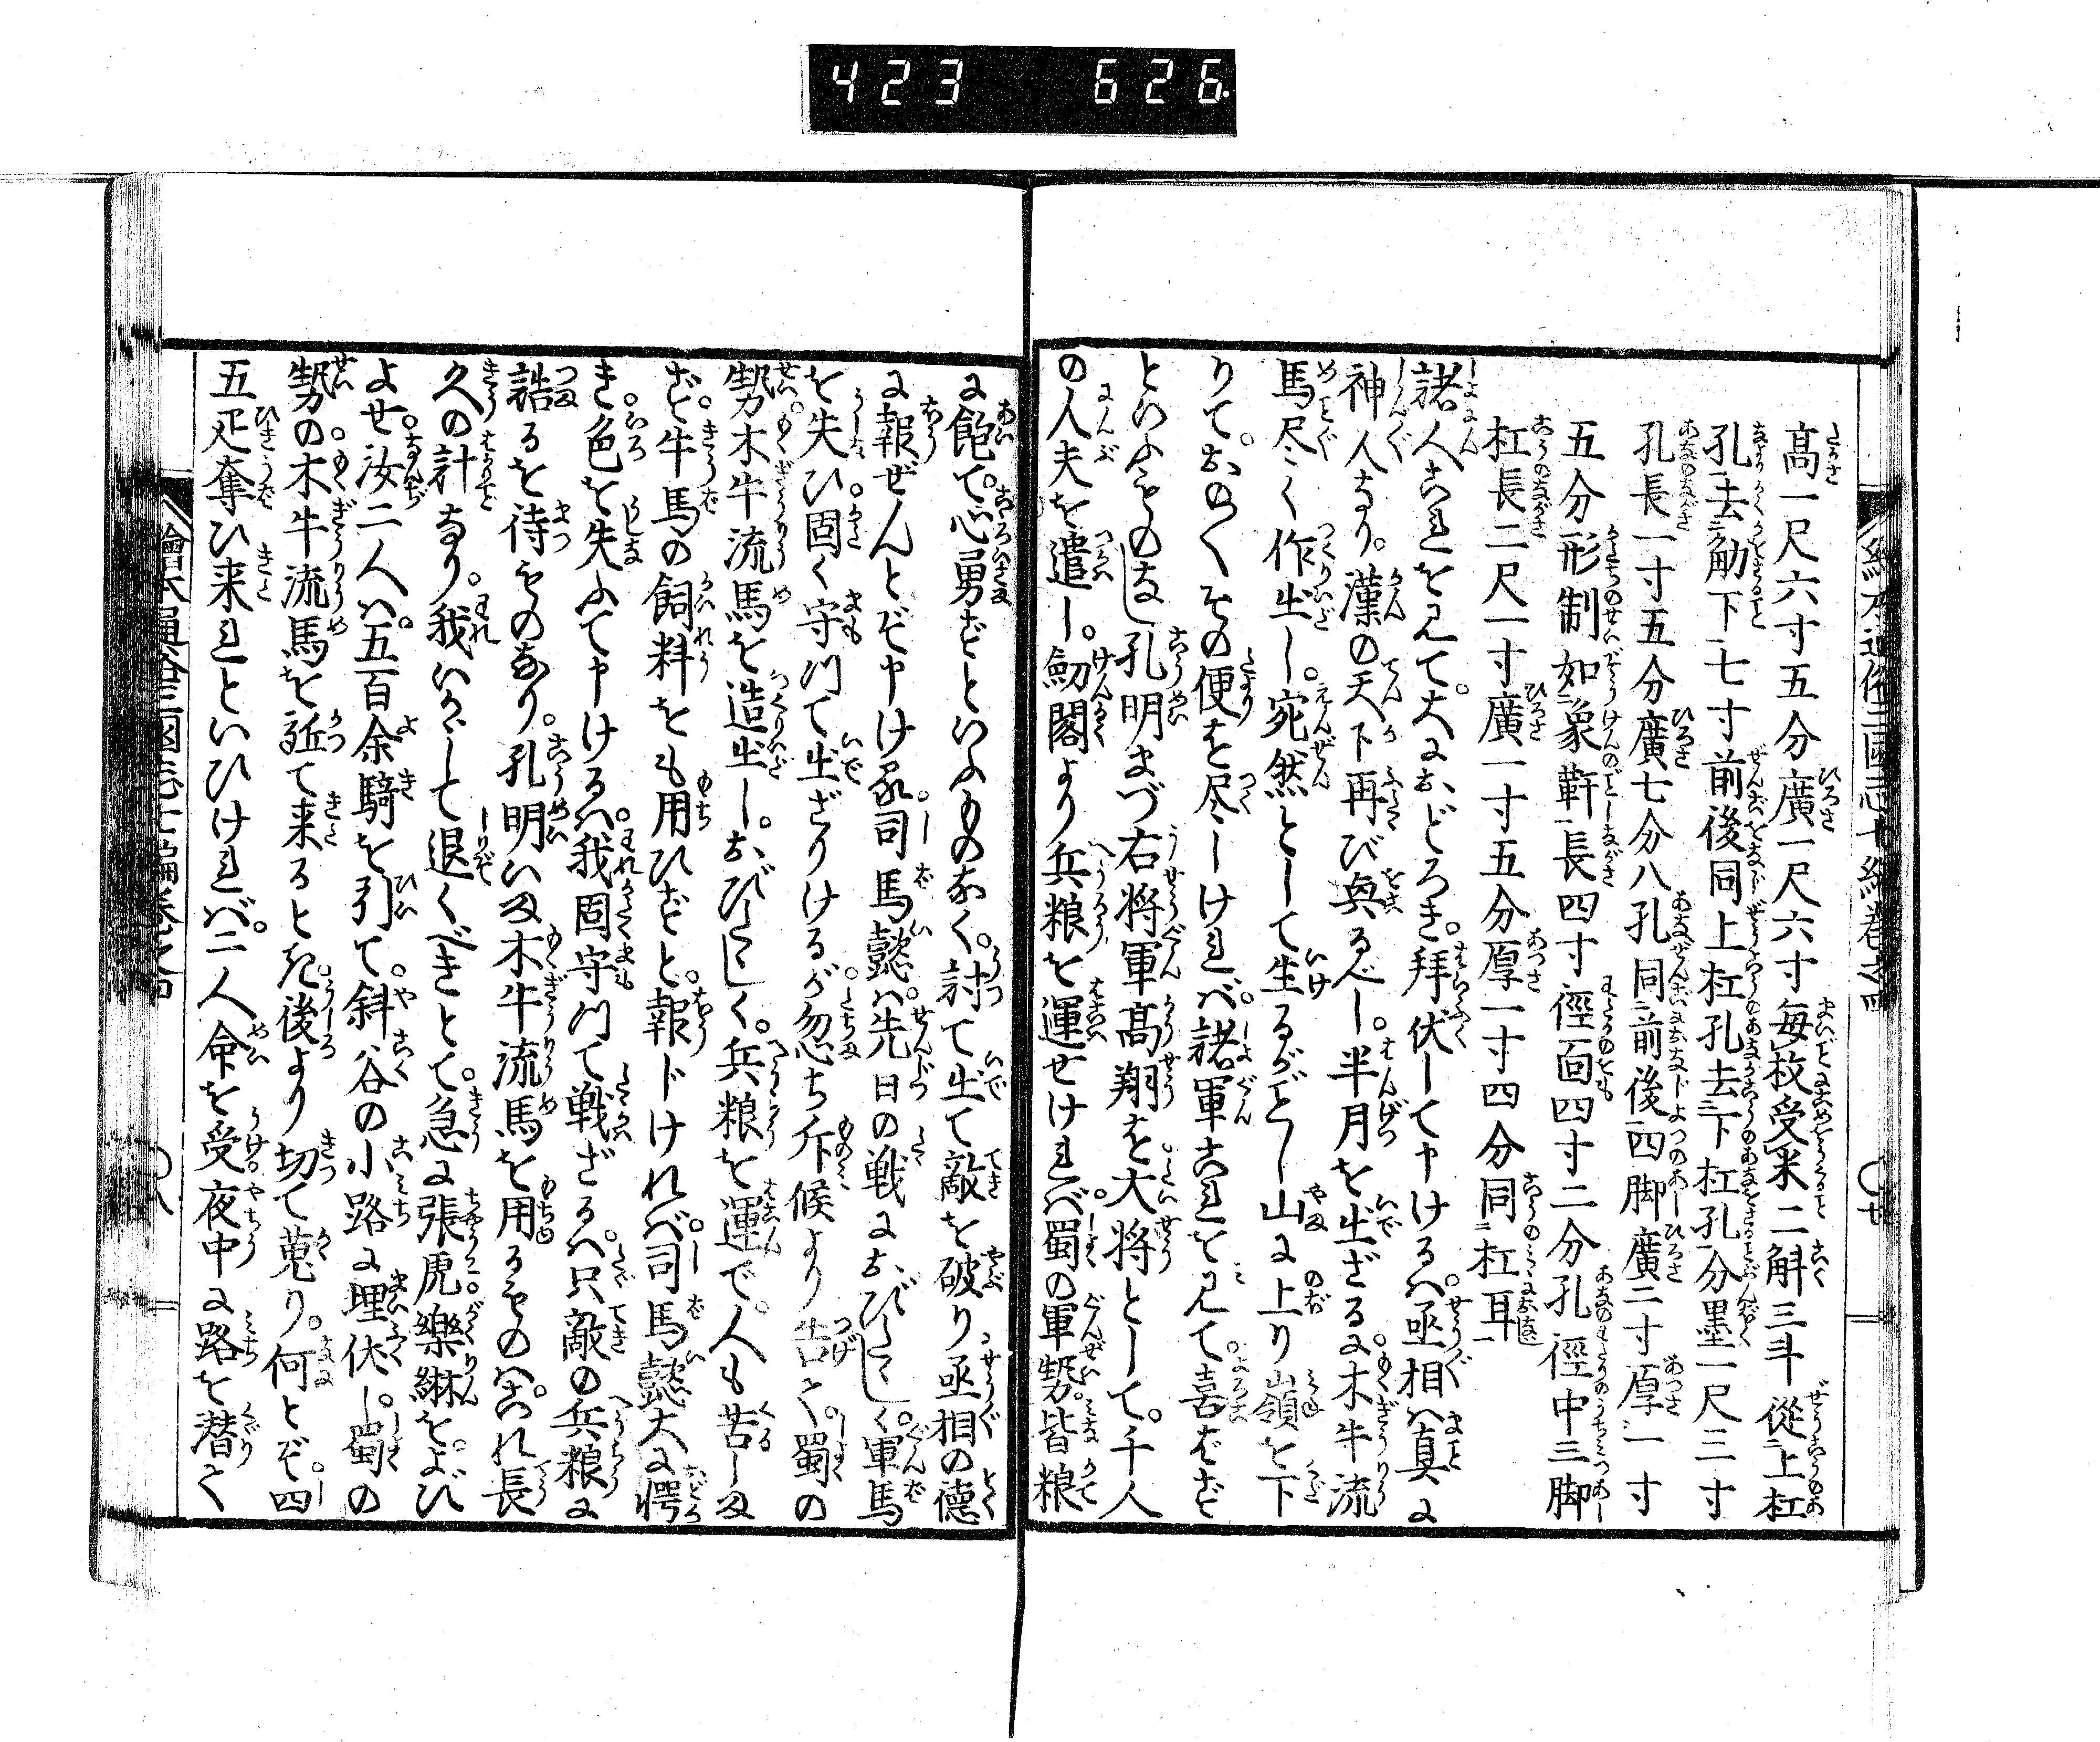 423 626
高一尺六寸五分廣一尺六寸毎枚受米二斛三斗從上杠
孔去肋下七寸前後同上杠孔去下杠孔分墨一尺三寸
孔長一寸五分廣七分八孔同前後四脚廣二寸厚一寸
五分形制如象靬長四寸徑面四寸二分孔徑中三脚
杠長二尺一寸廣一寸五分厚一寸四分同杠耳
諸人これを見て大におどろき。拝伏して申けるハ。丞相ハ真に
神人なり。漢の天下再び興るべし。半月を出ざるに。木牛流
馬尽く作出し。宛然として生るがごとし山に上り嶺を下
りて。おのくその便を尽しけれバ。諸軍これを見て。喜ばず
といふものなし孔明まづ右将軍高翔を大将として。千人
の人夫を遣し。劔閣より兵粮を運せけれバ。蜀の軍勢。皆粮
に飽て。心勇ずといふものなく。討て出て敵を破り丞相の徳
に報ぜんとぞ申ける。司馬懿ハ。先日の戦におびたゝしく軍馬
を失ひ。固く守つて出ざりけるが。忽ち斥候より告て。蜀の
勢。木牛流馬を造出し。おびたゝしく。兵粮を運で。人も苦しま
ず。牛馬の飼料をも用ひずと。報じけれバ。司馬懿大に愕
き。色を失ふて申けるハ。我固守つて戦ざるハ。只敵の兵粮に
詰るを待ものなり。孔明いま木牛流馬を用るものハ。これ長
久の計なり。我いかゞして退くべきとて。急に張虎。樂綝をよび
よせ。汝二人ハ。五百余騎を引て。斜谷の小路に埋伏し。蜀の
勢の。木牛流馬を近て来るとき。後より切て蒐り。何とぞ。四
五疋奪ひ来れといひけれバ。二人命を受。夜中に路を潜て